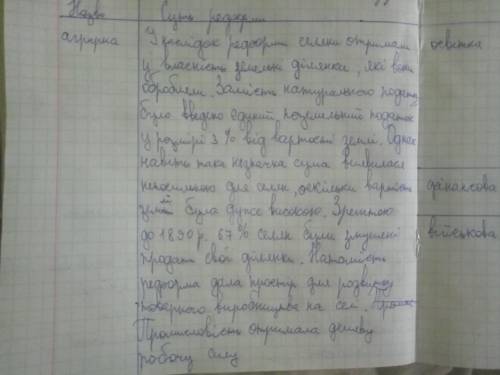 Назва Суть реформи
аграрна Унаслідок реформи селяни отримали освітня
у власність земельні ділянки, які вони
обробляли. Замість натурального податку
було введено єдиний поземельний податок
у розмірі 3% від вартості землі. Однак
навіть така незначна сума виявилася
непосильною для селян, оскільки вартість фінансова
землі була дуже високою. Зрештою
до 1890 р. 67% селян були змушені військова
продати свої ділянки. Натомість
реформа дала простір для розвитку
товарного виробництва на селі.
Промисловість отримала дешеву
робочу силу